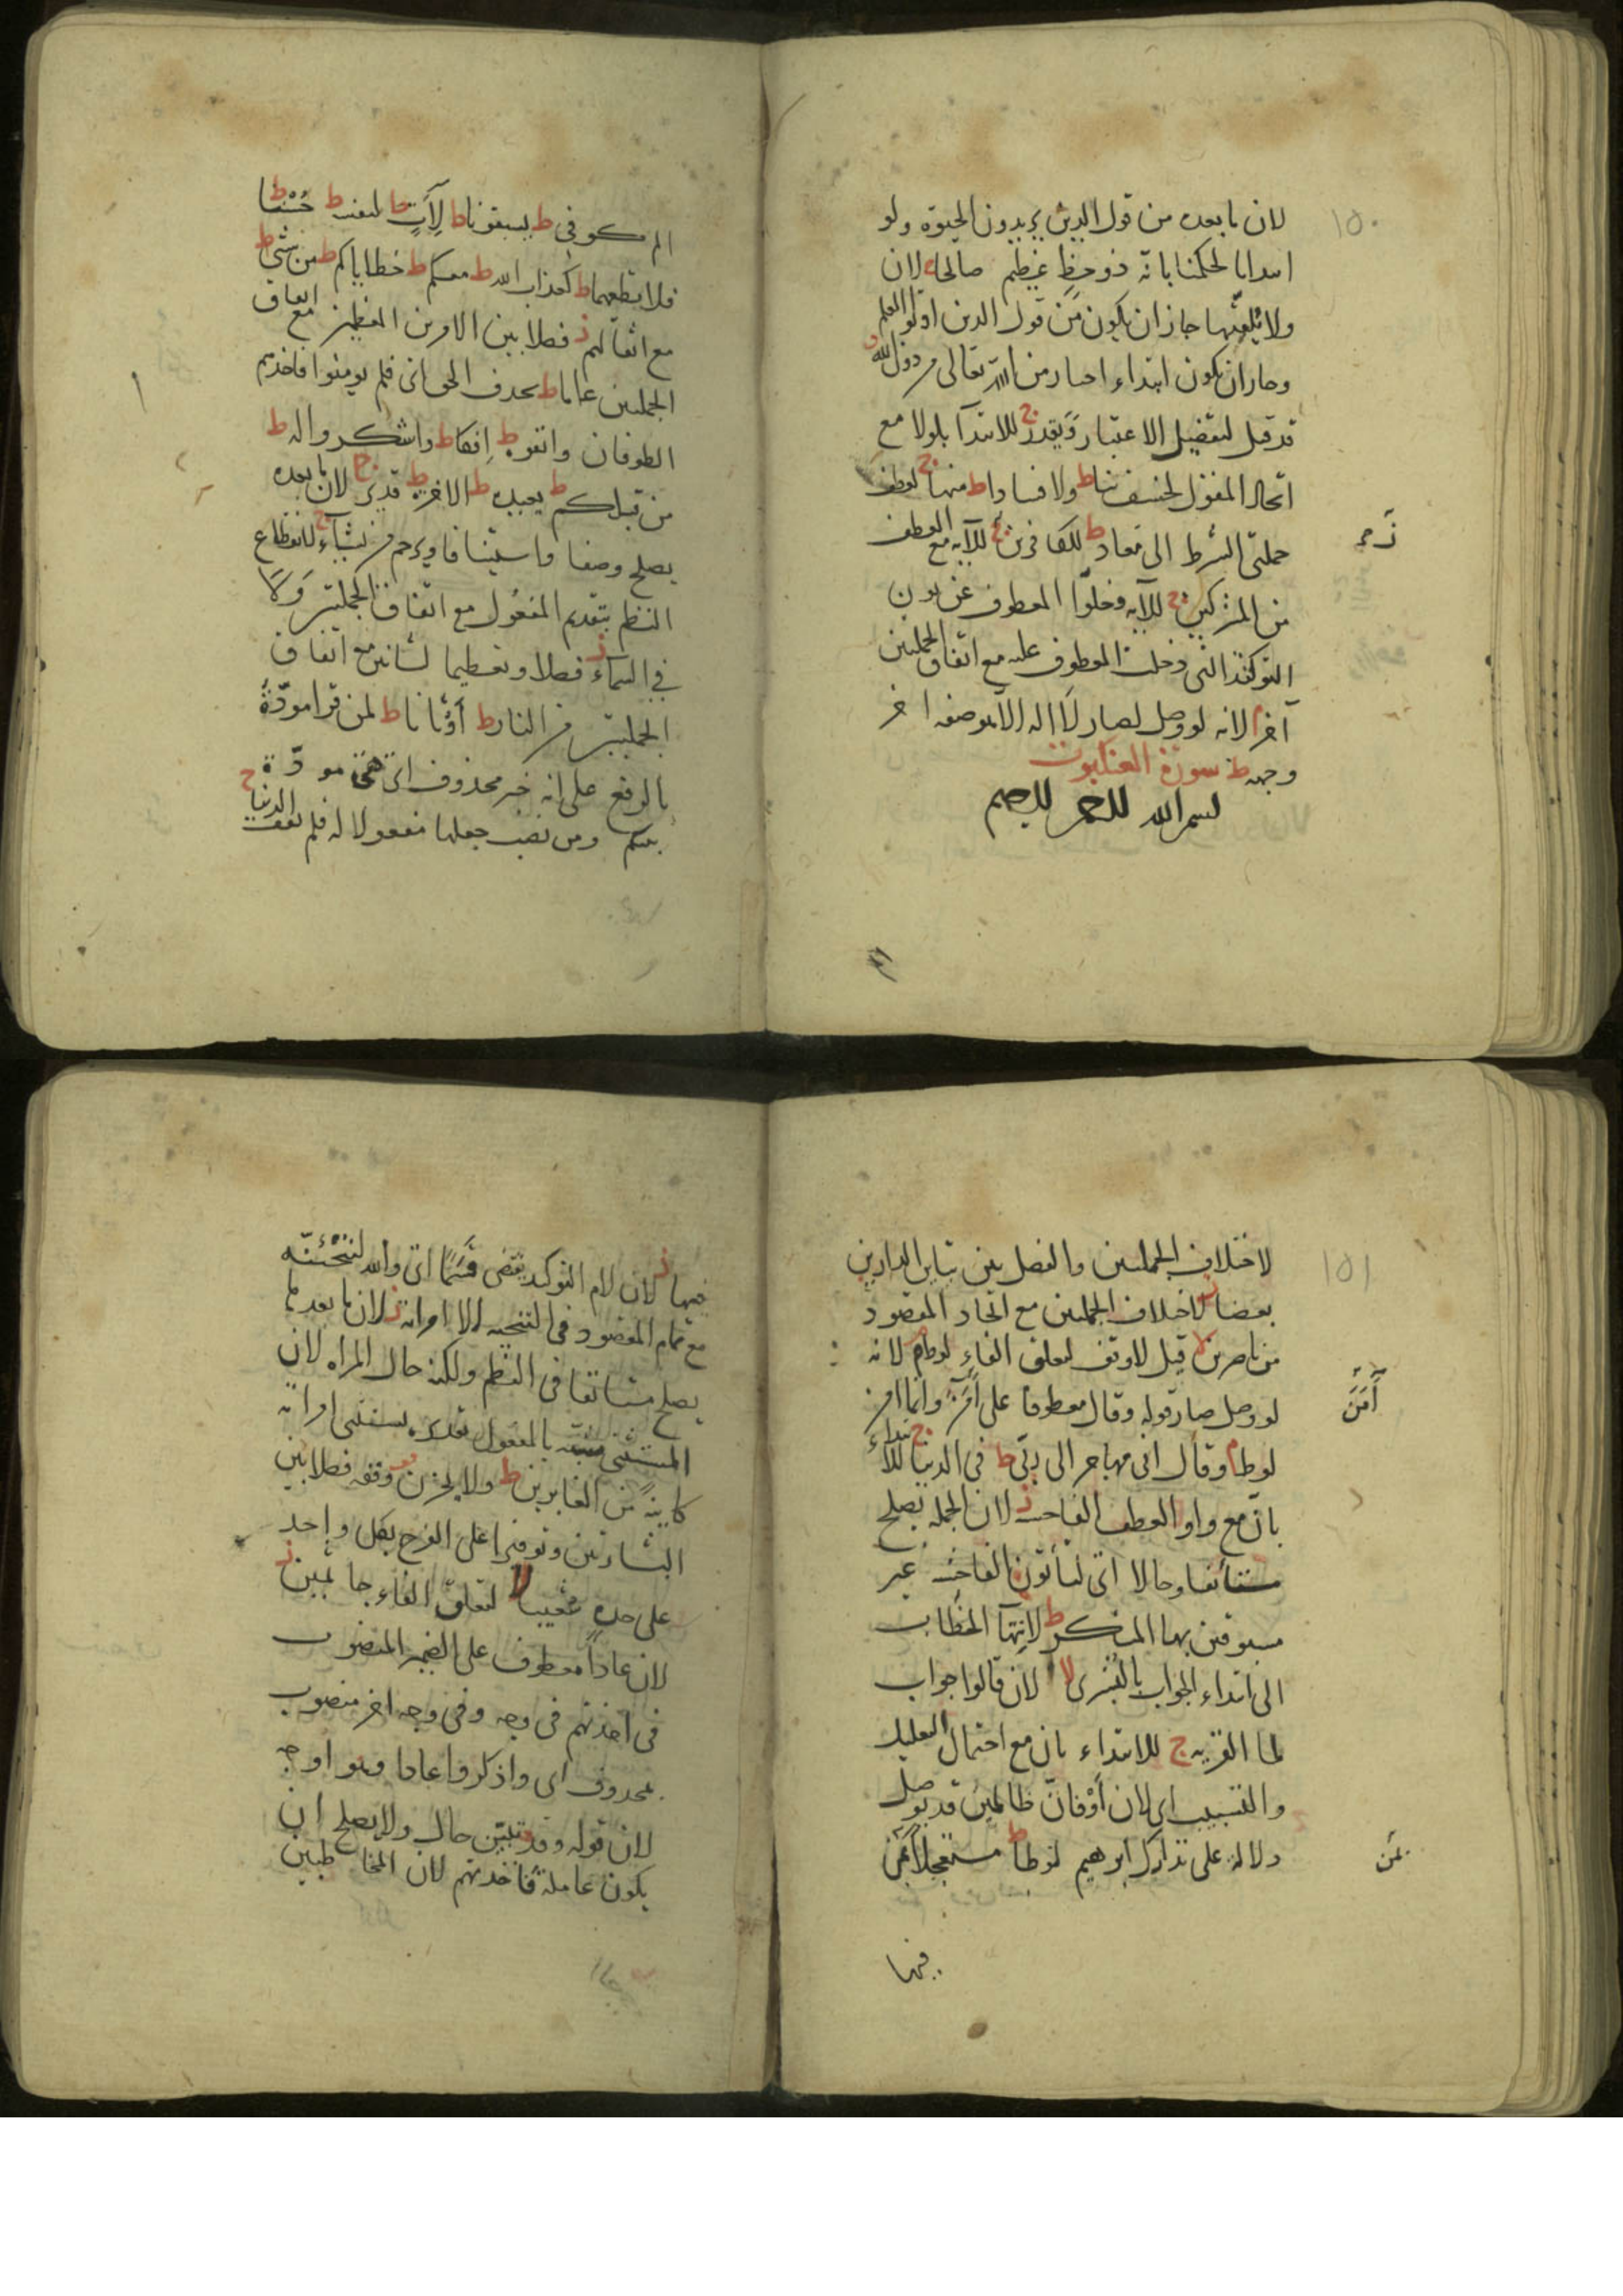 ١٥٠
لان ما بعده من قول الذين يريدون الحيوة ولو
ابتدانا لحكمنا بانه ذو حظ عظيم صالحا لان
ولا يلقيها جاز ان يكون من قول الذين اوتوا العلم
وجاز ان يكون ابتداء اخبار من الله تعالى من دون الله
قد قيل لتفضيل الاعتبار ويقدر ج للابتدآ بلولا مع
اتحاد المقول لخسف بنا ط ولا فسادا ط منها ج لعطف
جملتى الشرط الى معاد ط للكافرين ز للآية مع العطف
من المشركين ج للآية وخلوّ المعطوف عن نون
التوكيد التى دخلت المعطوف عليه مع اتفاق الجملتين
آخر م لانه لو وصل لصار لا اله الا هو صفه اخر
وجهه ط سورة العنكبوت
بسم الله الرحمن الرحيم
الم كوفى ط يسبقونا ط لآت ط لنفسه ط حسنا ط
فلا تطعهما ط كعذاب الله ط معكم ط خطاياكم ط من شئ ط
مع اثقالهم ز فصلا بين الامرين العظيمين مع اتفاق
الجملتين عاما ط بحذف الحق اى فلم يومنوا فاخذهم
الطوفان واتقوه ط افكا ط واشكروا له ط
من قبلكم ط يعيده ط الاخرة ط قدير ج لان ما بعده
يصلح وصفا واستينافا ويرحم من يشآء ج لانقطاع
النظم بتقديم المفعول مع اتفاق الجملتين ولا
فى السماء ز فصلا وتعظيما لشانين مع اتفاق
الجملتين من النار ط أوثانا ط لمن قرا مودّة
بالرفع على انه خبر محذوف اى هى مودّة
بينكم ومن نصب جعلها مفعولا له فلم يقف الدنيا ج
١٥١
لاختلاف الجملتين والفصل بين تباين الدارين
بعضا ز لاختلاف الجملتين مع اتحاد المقصود
من ناصرين لا قيل لا وقف لتعلق الفاء لوط م لانه
لو وصل صار قوله وقال معطوفا على آمن وانما امن
لوط م وقال انى مهاجر الى ربى ط فى الدنيا ج للابتداء
بان مع واو العطف الفاحشة ز لان الجملة تصلح
مستأنفا وحالا اى لتأتون الفاحشة غير
مسبوقين بها المنكر ط لانتهآ الخطاب
الى ابتداء الجواب بالبشرى لا لان قالوا جواب
لما القرية ج للابتداء بان مع احتمال التعليل
والتسبيب اى لان أو فان ظالمين قد يوصل
دلالة على تدارك ابرهيم لوطا ط مستعجلا بمن
بمن
فيها
فيها ز لان لام التوكيد يقتضى قسما اى والله لننجينّه
مع تمام المقصود فى التنجيه الا امراته ز لان ما بعدها
يصلح مستانفا فى النظم ولكنه حال المراه لان
المستثنى مشبّه بالمفعول تقديره يستثنى امراته
كاينة من الغابرين ط ولا يحزن وقفه فصلا بين
البشارتين وتوفيرا على الفرح بكل واحد
على حدة شعيبا لا لتعلق الفاء جاثمين ز
لان عادا معطوف على الضمير المنصوب
فى اخذتهم فى وجه وفى وجه اخر منصوب
بمحذوف اى واذكروا عادا وهو اوجه
لان قوله وقد تبيّن حال ولا يصلح ان
يكون عامله فاخذتهم لان المخاطبين